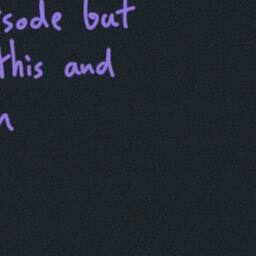 isode but
this and
n